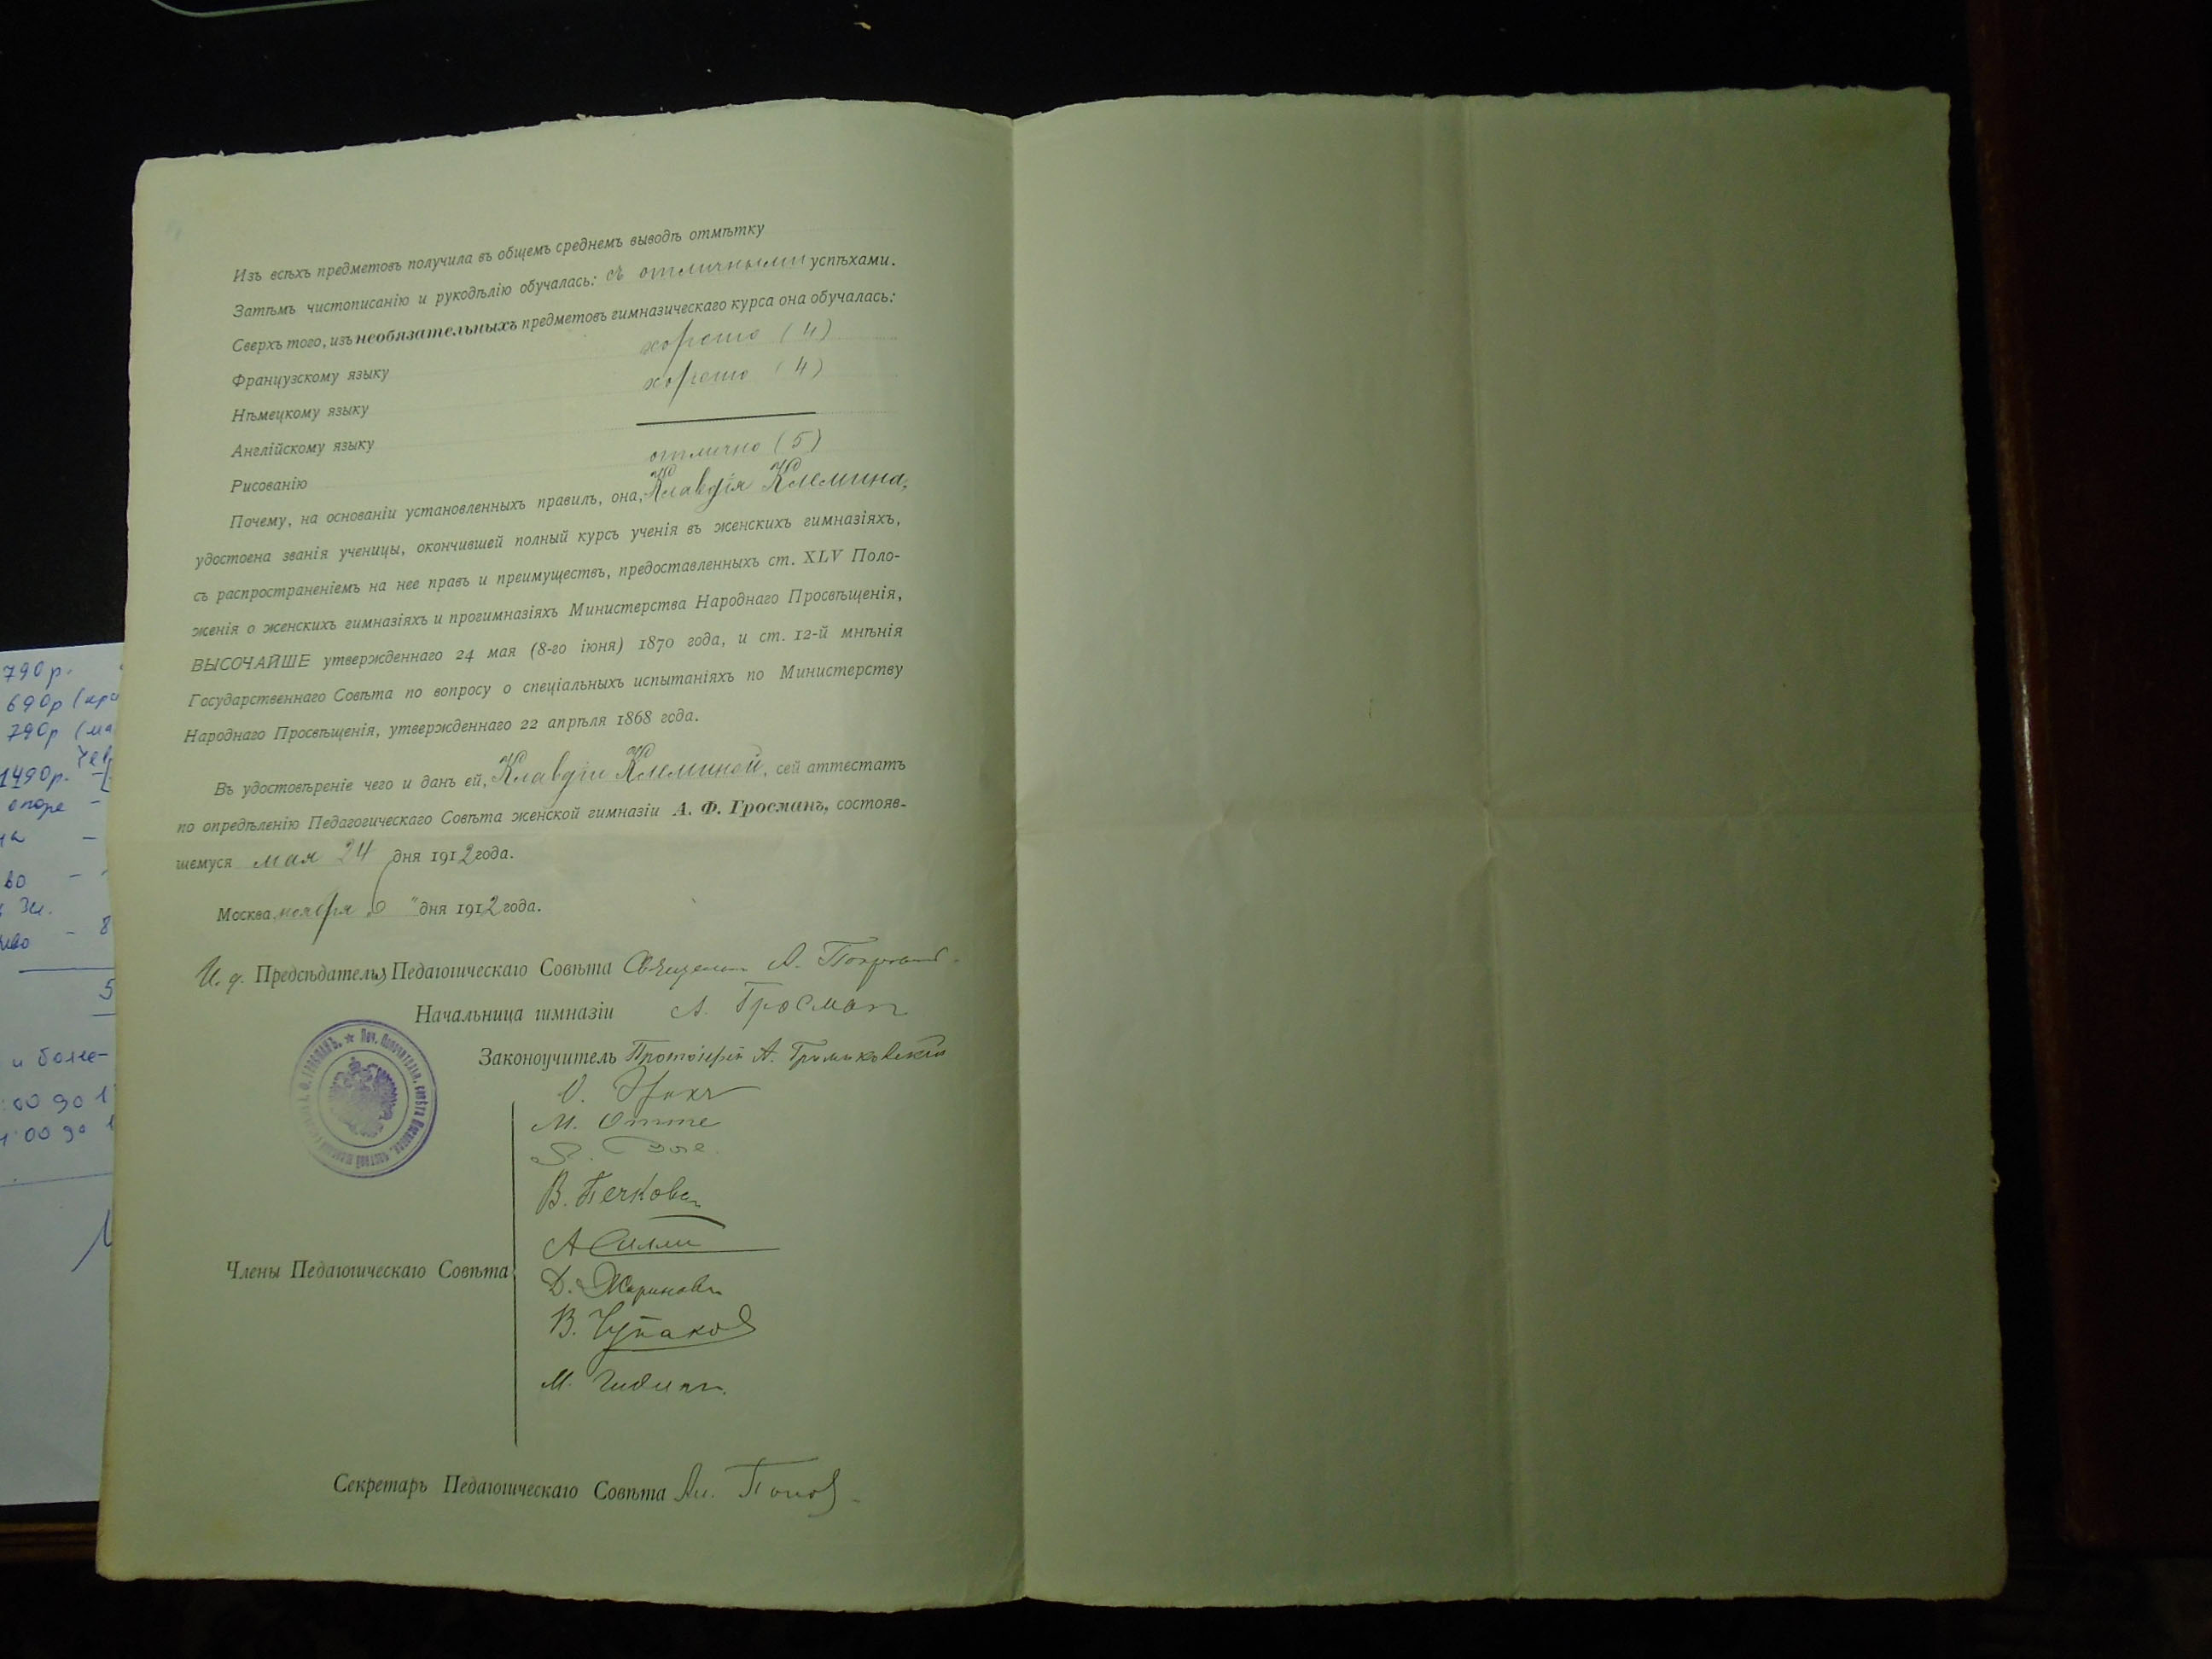 Изъ всѣхъ предметовъ получила въ общемъ среднемъ выводѣ отмѣтку
Затѣмъ чистописанію и рукодѣлію обучалась: съ отличными успѣхами.
Сверхъ того, изъ необязательныхъ предметовъ гимназическаго курса она обучалась:
Французскому языку хорошо (4)
Нѣмецкому языку хорошо (4)
Англійскому языку
Рисованію отлично (5)
Почему, на основаніи установленныхъ правилъ, она, Клавдія Клемина,
удостоена званія ученицы, окончившей полный курсъ ученія въ женскихъ гимназіяхъ,
съ распространеніемъ на нее правъ и преимуществъ, предоставленныхъ ст. XLV Поло-
женія о женскихъ гимназіяхъ и прогимназіяхъ Министерства Народнаго Просвѣщенія,
ВЫСОЧАЙШЕ утвержденнаго 24 мая (8-го іюня) 1870 года, и ст. 12-й мнѣнія
Государственнаго Совѣта по вопросу о спеціальныхъ испытаніяхъ по Министерству
Народнаго Просвѣщенія, утвержденнаго 22 апрѣля 1868 года.
Въ удостовѣреніе чего и данъ ей, Клавдіи Клеминой, сей аттестатъ
по опредѣленію Педагогическаго Совѣта женской гимназіи А. Ф. Гросманъ, состояв-
шемуся мая 24 дня 1912 года.
Москва, ноября 6 "дня 1912 года.
И. д. Предсѣдателя Педагогическаго Совѣта Священникъ А.
Начальница гимназіи А. Гросманъ
Законоучитель Протоіерей А.
М. Отте
В. Печковс
Члены Педагогическаго Совѣта
Д.
В. Чупаковъ
М.
Секретарь Педагогическаго Совѣта Ал. Поповъ
790р.
690р (кра
790р (ма
1490р.
во
и более-